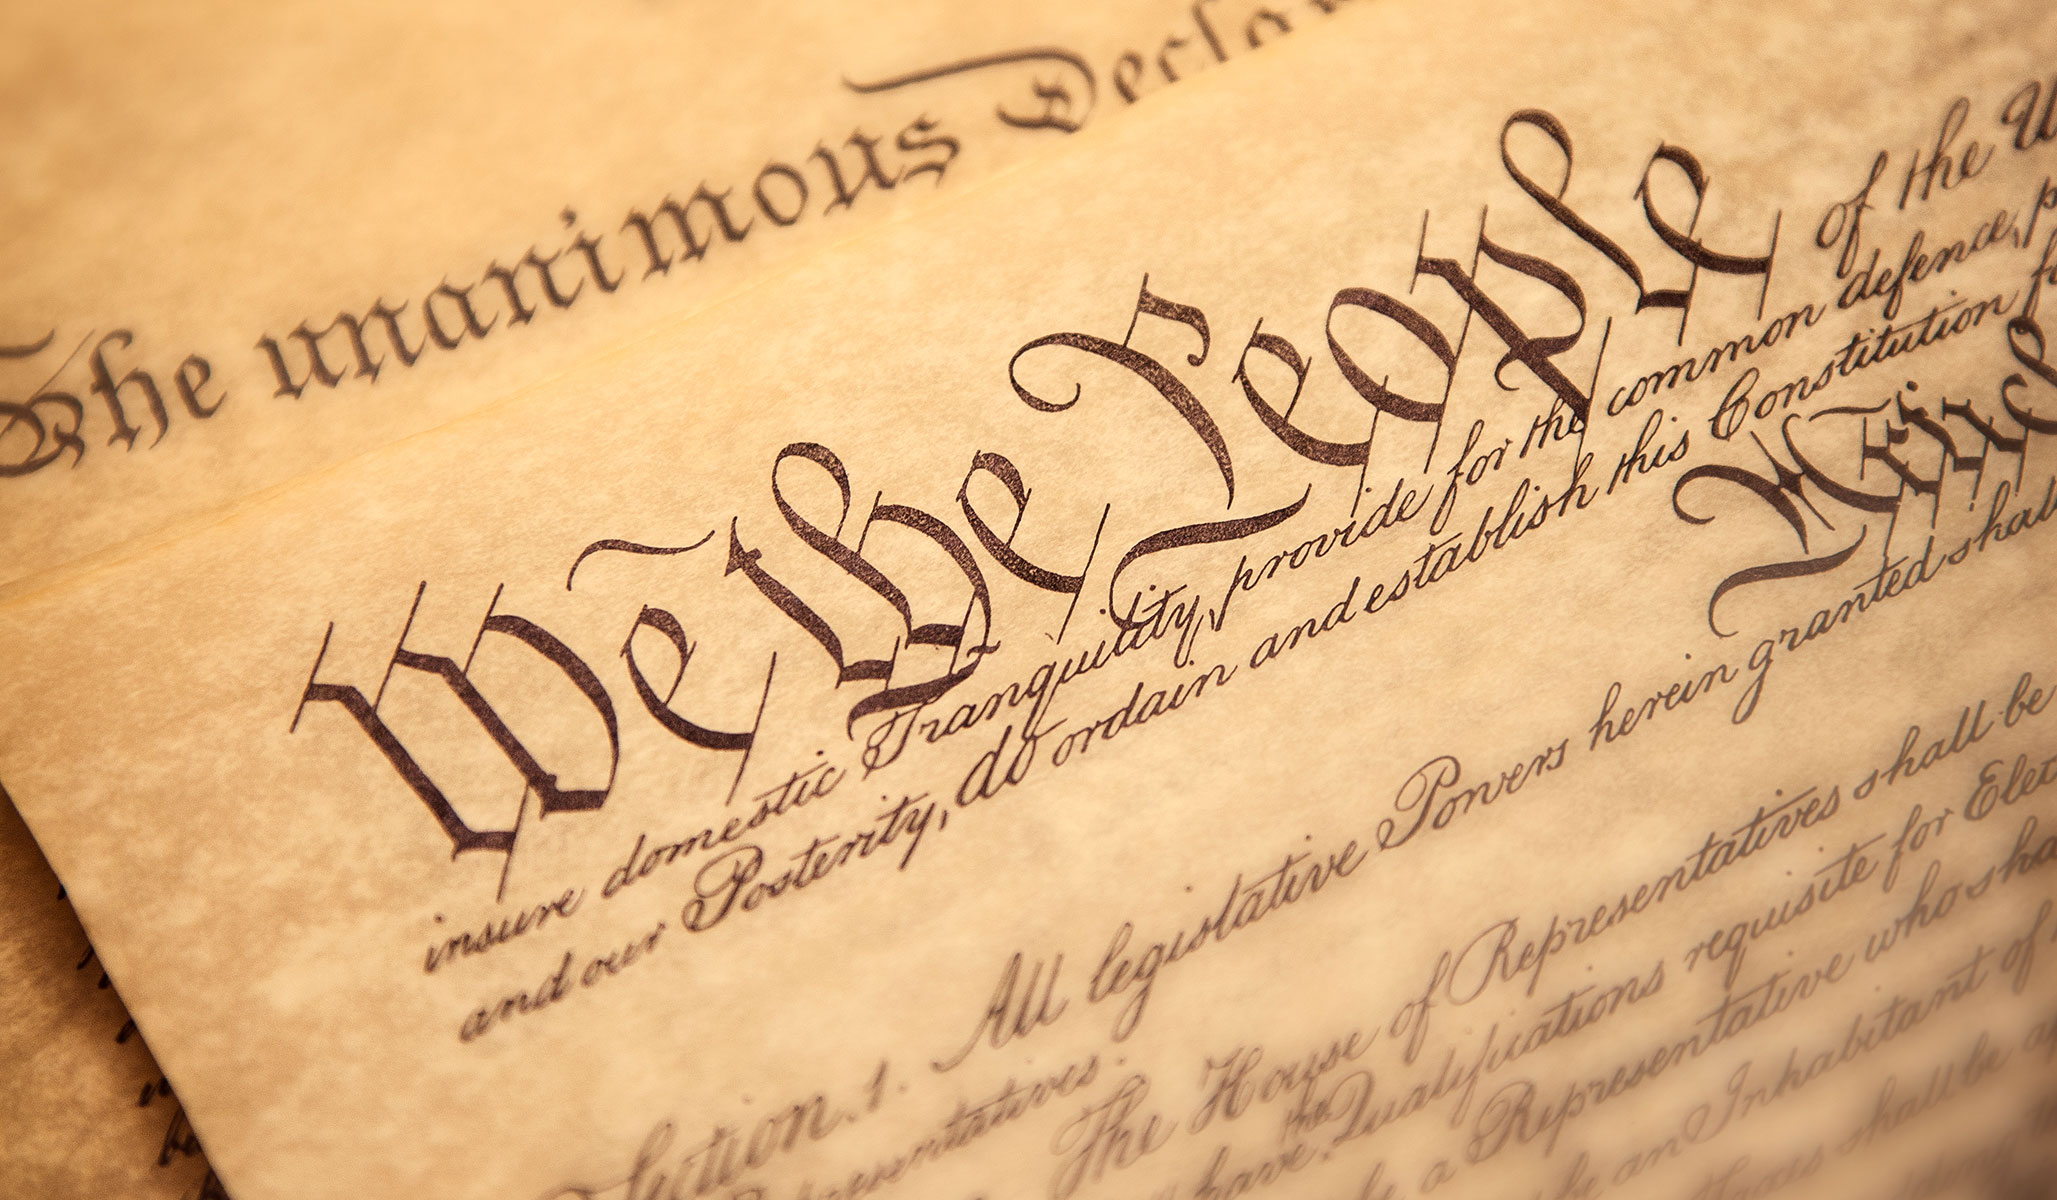 The unanimous Decla
We the People of the U
insure domestic Tranquility, provide for the common defence, p
and our Posterity, do ordain and establish this Constitution fo
Articl
Section. 1. All legislative Powers herein granted shall
Representatives.
The House of Representatives shall be
have the Qualifications requisite for Elect
be a Representative who sha
be an Inhabitant of
shall be ap